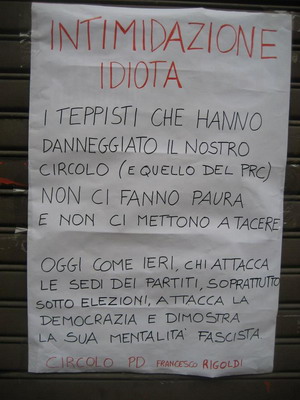 INTIMIDAZIONE
IDIOTA
I TEPPISTI CHE HANNO
DANNEGGIATO IL NOSTRO
CIRCOLO (E QUELLO DEL PRC)
NON CI FANNO PAURA
E NON CI METTONO A TACERE
OGGI COME IERI, CHI ATTACCA
LE SEDI DEI PARTITI, SOPRATTUTTO
SOTTO ELEZIONI, ATTACCA LA
DEMOCRAZIA E DIMOSTRA
LA SUA MENTALITA' FASCISTA
CIRCOLO PD FRANCESCO RIGOLDI